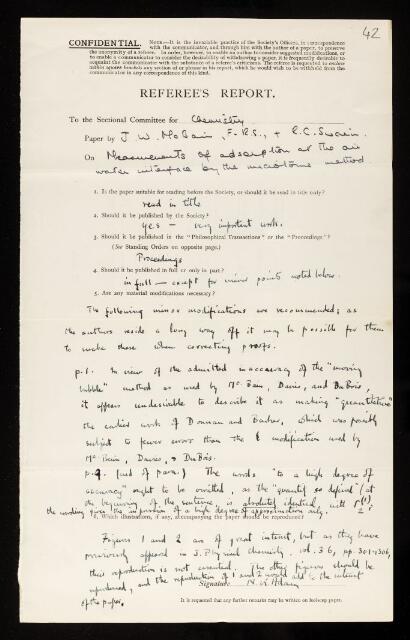 42
CONFIDENTIAL. NOTE.—It is the invariable practice of the Society's Officers, in correspondence
with the communicator, and through him with the author of a paper, to preserve
the anonymity of a referee. In order, however, to enable an author to consider suggested modifications, or
to enable a communicator to consider the desirability of withdrawing a paper, it is frequently desirable to
acquaint the communicator with the substance of a referee's criticisms. The referee is requested to enclose
within square brackets any section of or phrase in his report, which he would wish to be withheld from the
communicator in any correspondence of this kind.
REFEREE'S REPORT.
To the Sectional Committee for Chemistry
Paper by J. W. McBain, F.R.S., + R. C. Swain.
On Measurements of adsorption at the air
water interface by the microtome method
1. Is the paper suitable for reading before the Society, or should it be read in title only?
read in title
2. Should it be published by the Society?
yes — very important work.
3. Should it be published in the "Philosophical Transactions" or the "Proceedings"?
(See Standing Orders on opposite page.)
Proceedings
4. Should it be published in full or only in part?
in full — except for minor points noted below.
5. Are any material modifications necessary?
The following minor modifications are recommended; as
the authors reside a long way off it may be possible for them
to make these when correcting proofs.
p.1. In view of the admitted inaccuracy of the "moving
bubble" method as used by McBain, Davies, and DuBois,
it appears undesirable to describe it as making "quantitative"
the earlier work of Donnan and Barker, which was possibly
subject to fewer errors than the modification used by
McBain, Davies, + DuBois.
p.9. (end of para.) The words "to a high degree of
accuracy" ought to be omitted, as the "quantity so defined" (at
the beginning of the sentence) is absolutely identical with
the wording gives the impression of a high degree of approximation only.
6. Which illustrations, if any, accompanying the paper should be reproduced?
Figures 1 and 2 are of great interest, but as they have
previously appeared in J. Physical Chemistry, vol. 36, pp. 301, 306,
their reproduction is not essential. The other figures should be
reproduced, and the reproduction of 1 and 2 would add to the interest
of the paper.
Signature N. K. Adam
It is requested that any further remarks may be written on foolscap paper.